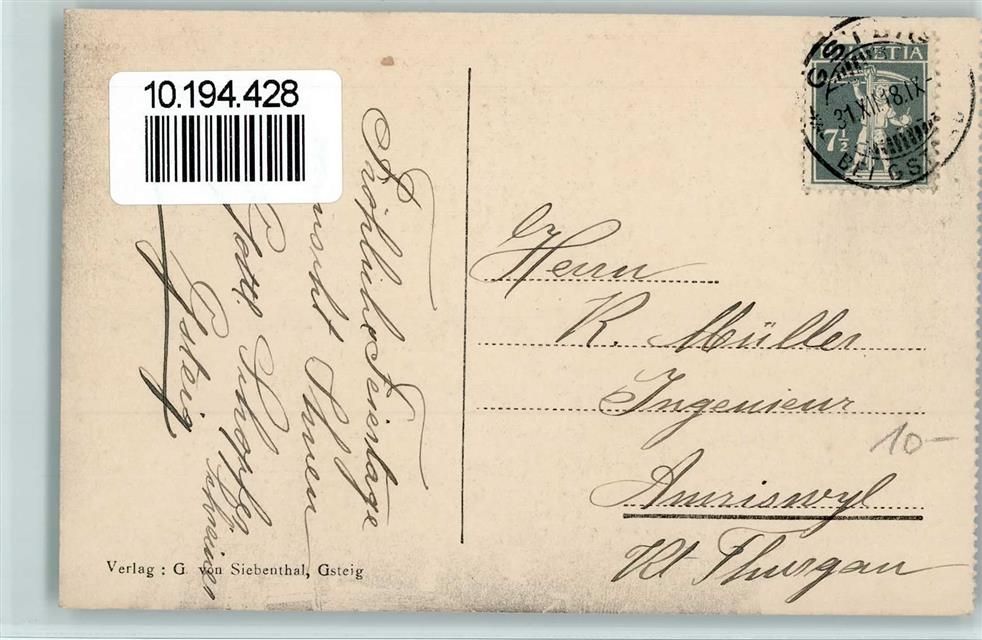 10.194.428
Fröhliche Feiertage
wünscht Ihnen
Gottl. Schopfer
Schreiner
Gsteig
HELVETIA
7½
GSTEIG
31.XII.18.IX-
BEI GSTAAD
Herrn
R. Müller
Ingenieur
Amriswyl
Kt Thurgau
10-
Verlag : G. von Siebenthal, Gsteig